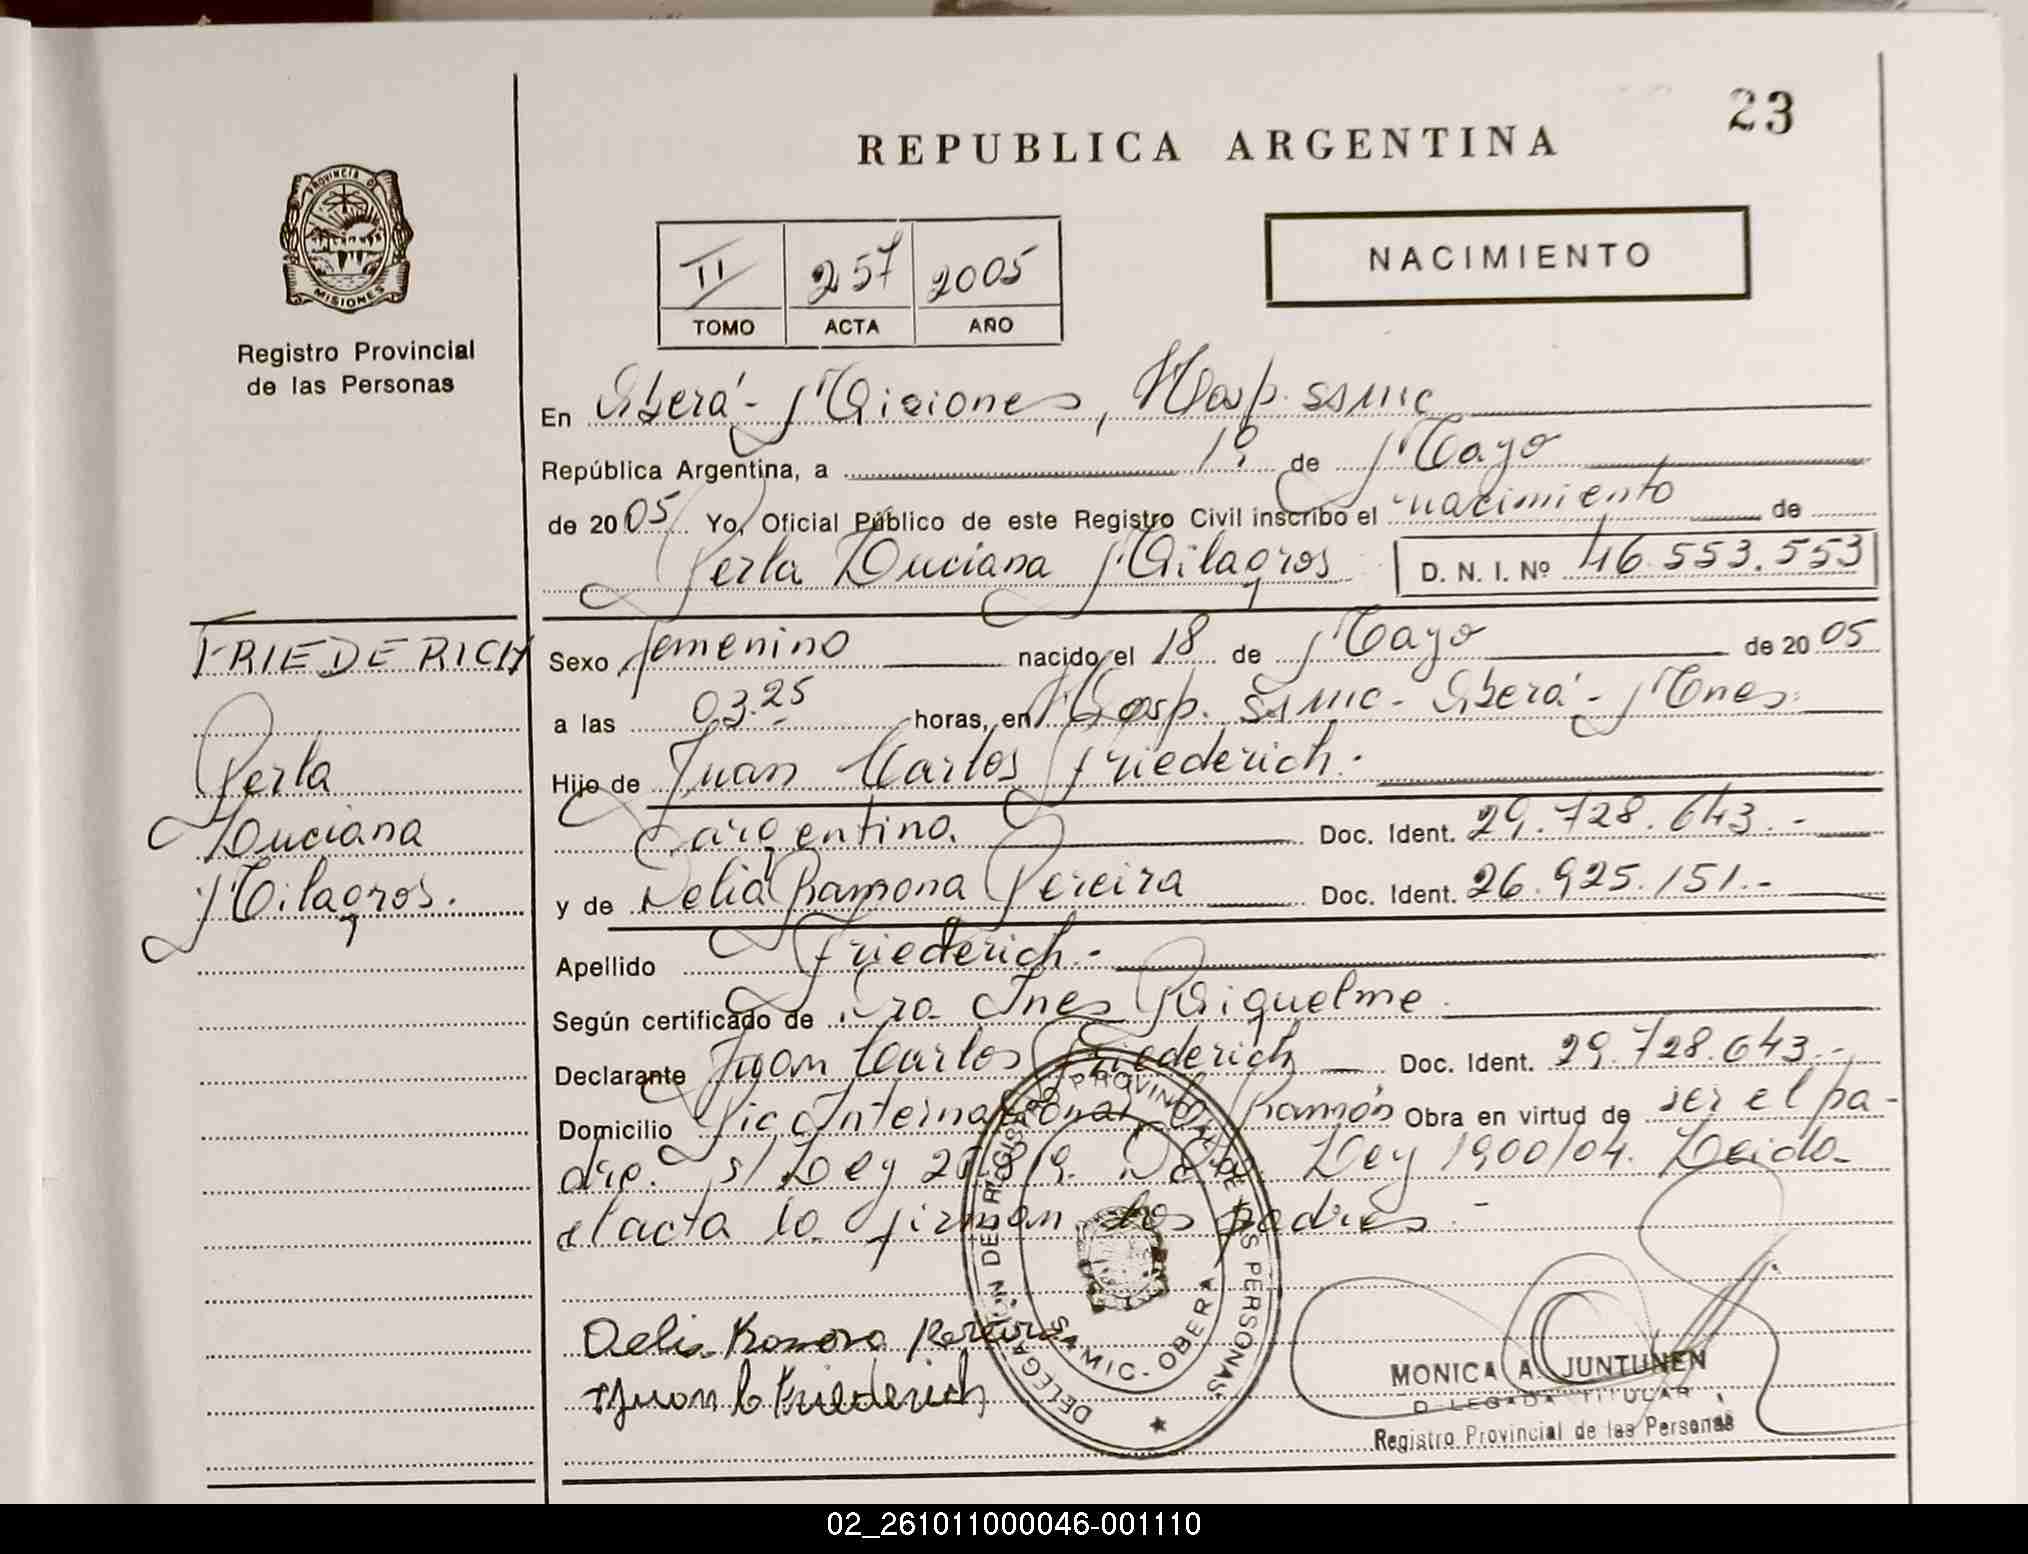 23
REPUBLICA ARGENTINA
PROVINCIA DE
MISIONES
Registro Provincial
de las Personas
II 257 2005
TOMO ACTA AÑO
NACIMIENTO
En Oberá - Misiones, Hosp. SSMIC
República Argentina, a 19 de Mayo
de 2005 Yo, Oficial Público de este Registro Civil inscribo el nacimiento de
Perla Luciana Milagros D. N. I. Nº 46.553.553
FRIEDERICH
Perla
Luciana
Milagros.
Sexo femenino nacido el 18 de Mayo de 2005
a las 03.25 horas, en Hosp. SSMIC - Oberá - Mnes.
Hijo de Juan Carlos Friederich.-
argentino. Doc. Ident. 29.728.643.-
y de Delia Ramona Pereira Doc. Ident. 26.925.151.-
Apellido Friederich.-
Según certificado de Dra. Ines Riquelme
Declarante Juan Carlos Friederich Doc. Ident. 29.728.643.-
Domicilio Pic. Internacional, Ramón Obra en virtud de ser el pa-
dre. s/ Ley Ley 1900/04. Leida
el acta la firman los padres.-
Delia Ramona Pereira
Juan C Friederich
DELEGACIÓN DEL REGISTRO PROVINCIAL DE LAS PERSONAS
SAMIC - OBERA
MONICA A. JUNTUNEN
DELEGADA TITULAR
Registro Provincial de las Personas
02_261011000046-001110